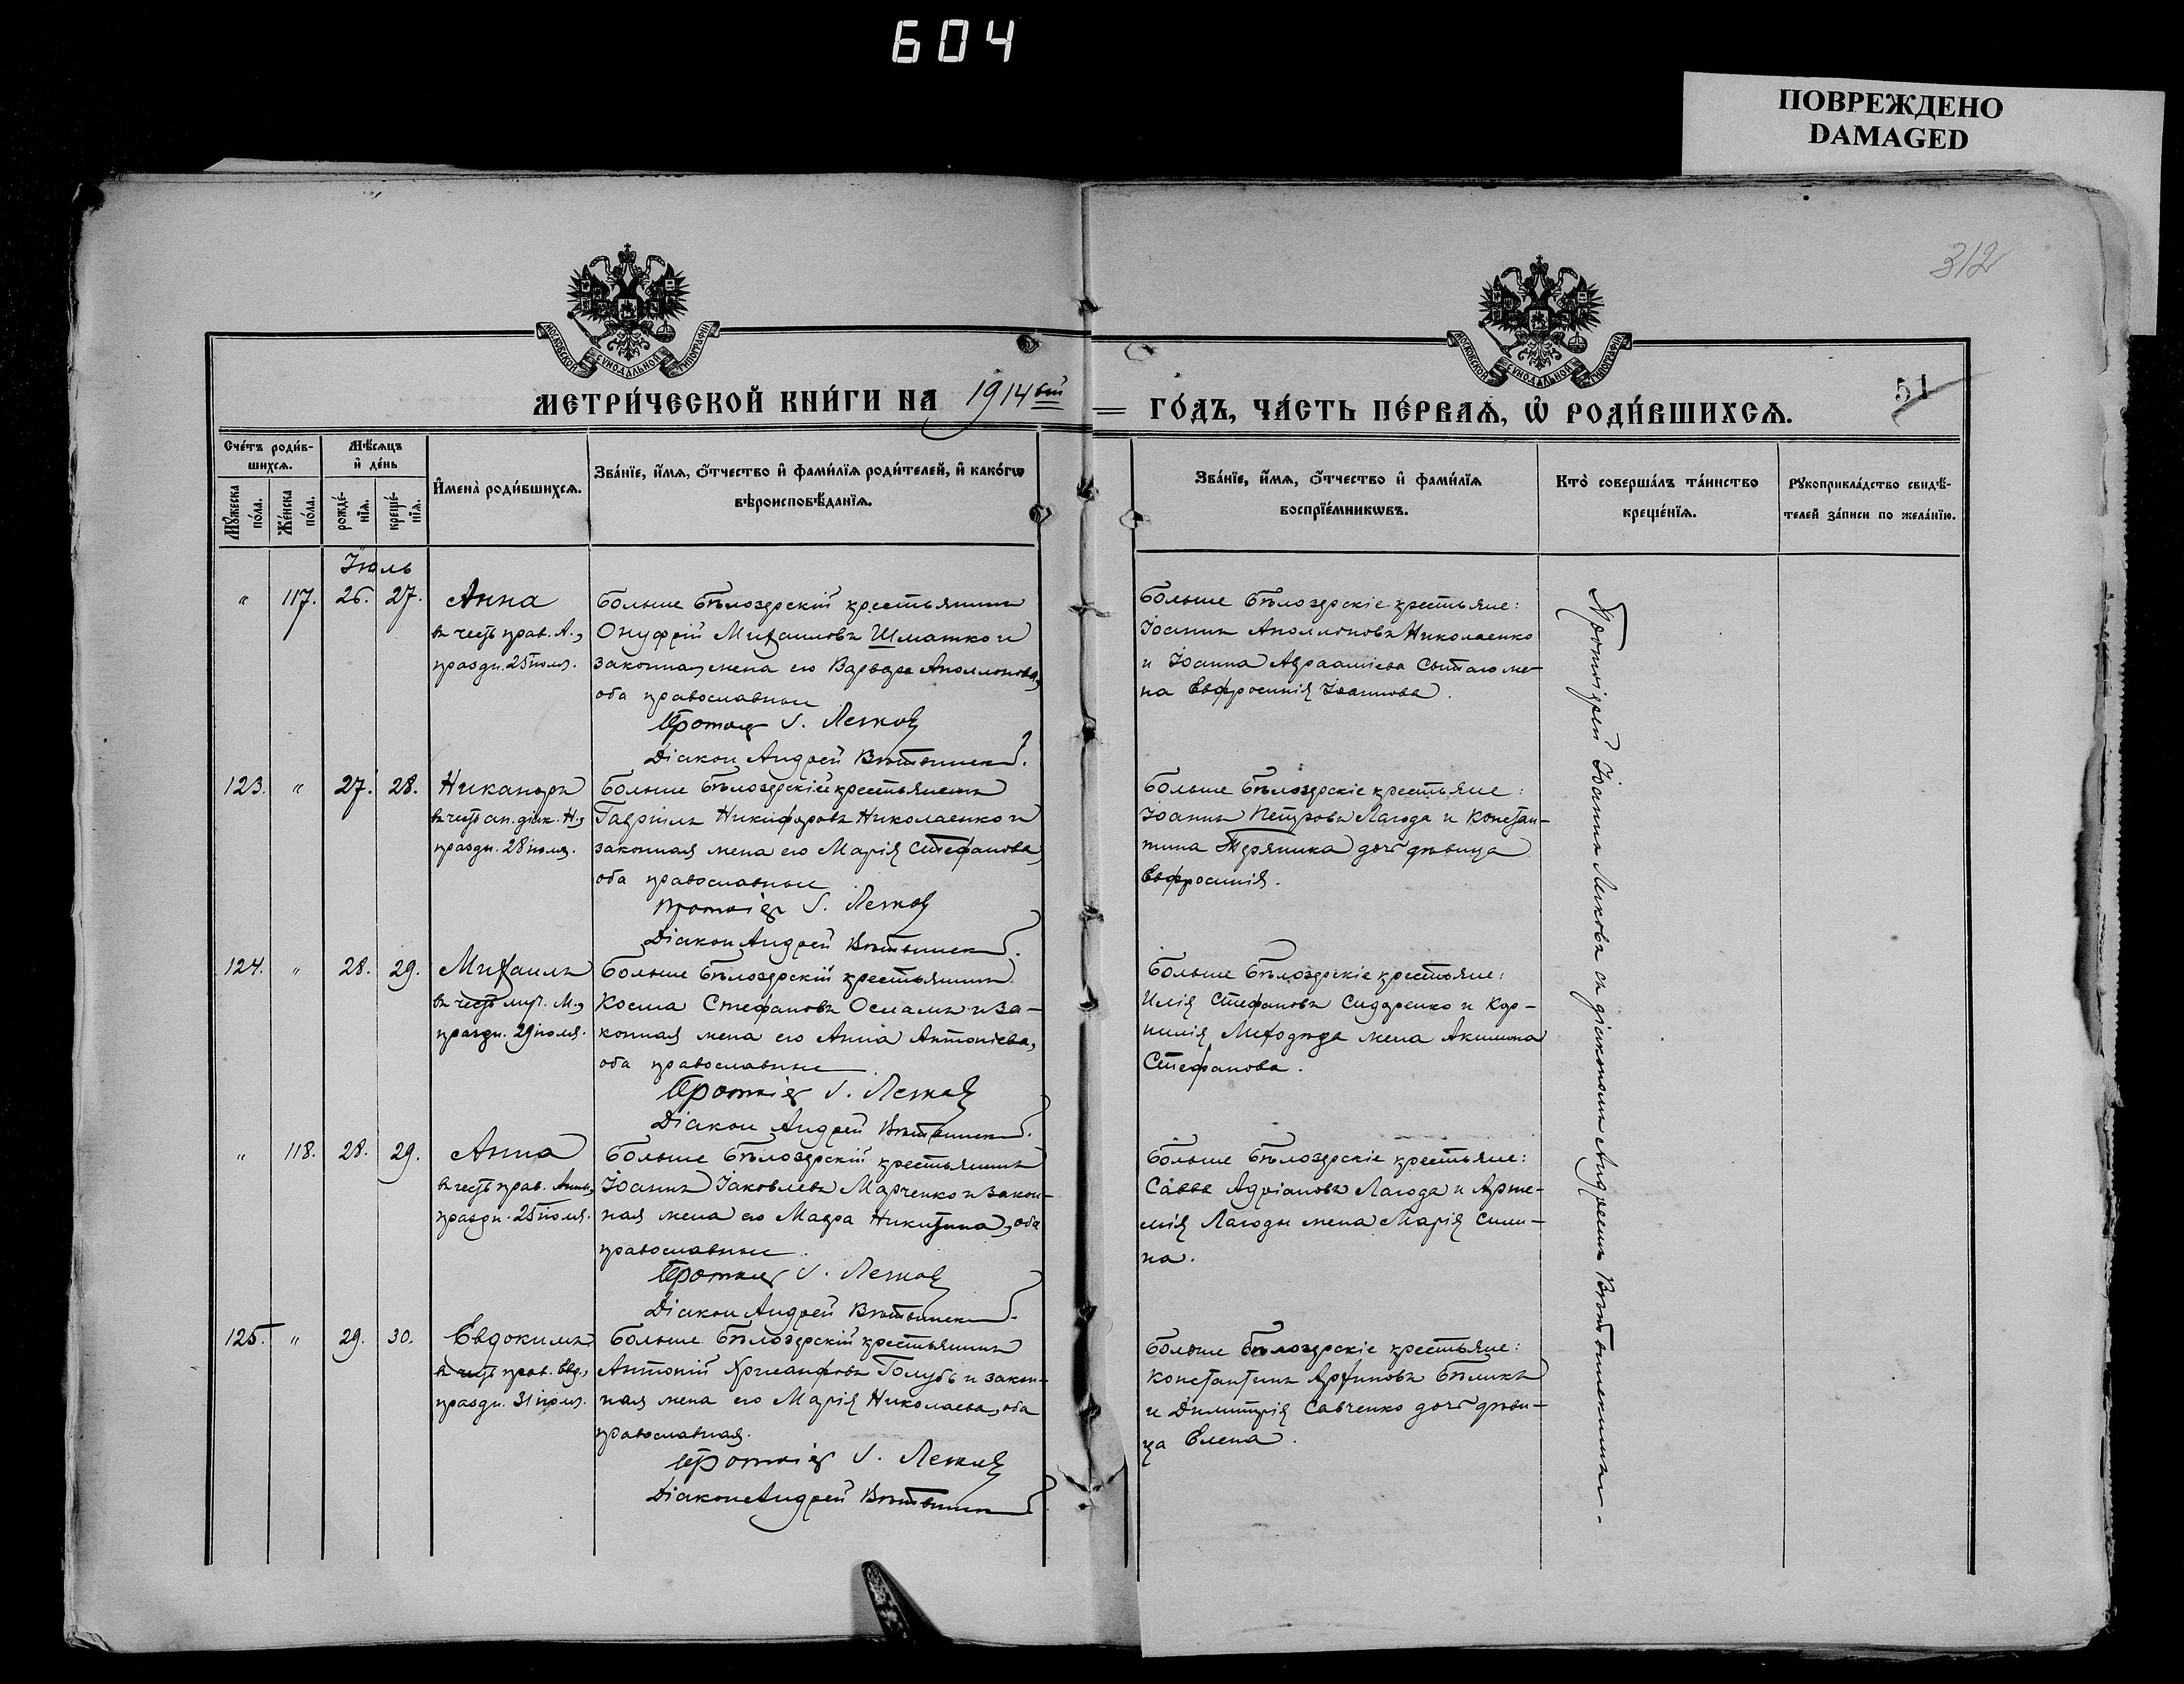 604
ПОВРЕЖДЕНО
DAMAGED
312
МОСКОВСКОЙ СѴНОДАЛЬНОЙ ТИПОГРАФІИ
МОСКОВСКОЙ СѴНОДАЛЬНОЙ ТИПОГРАФІИ
МЕТРИ́ЧЕСКОЙ КНИ́ГИ НА 1914 ый
ГО́ДЪ, ЧА́СТЬ ПЕ́РВАѦ, Ѡ҆ РОДИ́ВШИХСѦ.
51
Сче́тъ роди́в-
шихсѧ.
Мѣ́сѧцъ
и҆ де́нь
Мꙋ́жеска
по́ла.
Же́нска
по́ла.
рожде́-
нїѧ.
креще́-
нїѧ.
И҆мена̀ роди́вшихсѧ.
Зва́нїе, и҆́мѧ, ѻ҆́тчество и҆ фами́лїѧ роди́телей, и҆ како́гѡ
вѣроисповѣ́данїѧ.
Зва́нїе, и҆́мѧ, ѻ҆́тчество и҆ фами́лїѧ
воспрїе́мникѡвъ.
Кто̀ соверша́лъ та́инство
креще́нїѧ.
Рꙋкоприкла́дство свидѣ́-
телей за́писи по жела́нїю.
Іюль
" 117. 26. 27. Анна
въ честь прав. А.,
праздн. 25 іюля.
Больше Бѣлозерскій крестьянинъ
Онуфрій Михаиловъ Шматко и
законная жена его Варвара Аполлонова,
оба православные
Протоіер І.
Діакон Андрей
Больше Бѣлозерскіе крестьяне:
Іоаннъ Аполлоновъ Николаенко
и Іоанна Авраамiева Сытаго же-
на Евфросинія Іоаннова.
123. " 27. 28. Никаноръ
въ честь ап. діак. Н.,
праздн. 28 іюля.
Больше Бѣлозерскій крестьянинъ
Гавріилъ Никифоровъ Николаенко и
законная жена его Марія Стефанова,
оба православные
Протоіер І.
Діакон Андрей
Больше Бѣлозерскіе крестьяне:
Іоаннъ Петровъ Лагода и Констан-
тина дочь дѣвица
Евфросинія.
124. " 28. 29. Михаилъ
въ честь муч. М.,
праздн. 29 іюля.
Больше Бѣлозерскій крестьянинъ
Косма Стефановъ и за-
конная жена его Анна Антоніева,
оба православные
Протоіер І.
Діакон Андрей
Больше Бѣлозерскіе крестьяне:
Илія Стефановъ Сидоренко и Кор-
нилія жена Акилина
Стефанова.
" 118. 28. 29. Анна
въ честь прав. Анны,
праздн. 25 іюля.
Больше Бѣлозерскій крестьянинъ
Іоаннъ Іаковлевъ Марченко и закон-
ная жена его Мавра Никитина, оба
православные
Протоіер І.
Діакон Андрей
Больше Бѣлозерскіе крестьяне:
Савва Адріановъ Лагода и Арте-
мія Лагоды жена Марія Сими-
на.
125. " 29. 30. Евдокимъ
въ честь прав. Евд.,
праздн. 31 іюля.
Больше Бѣлозерскій крестьянинъ
Антоній Голубъ и закон-
ная жена его Марія Николаева, оба
православная.
Протоіер І.
Діакон Андрей
Больше Бѣлозерскіе крестьяне:
Константинъ Бѣликъ
и Димитрія Савченко дочь дѣви-
ца Елена.
Протоіерей Іоаннъ съ діакономъ Андреемъ